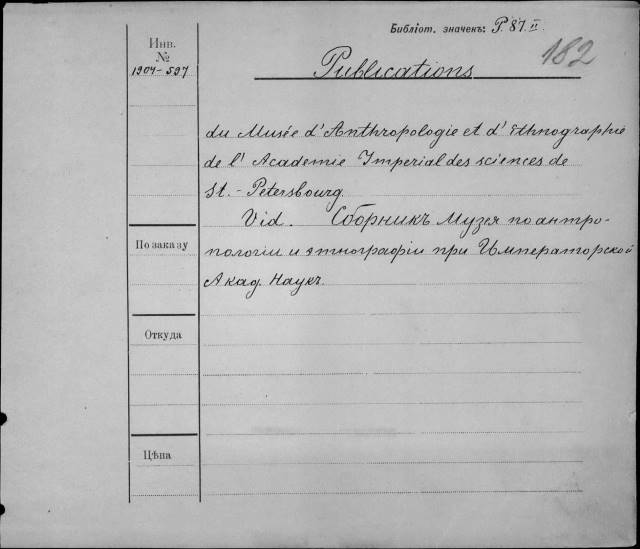 Библіот. значекъ: P. 87. II
182
Инв.
№
1904-597
Publications
du Musée d'Anthropologie et d'Ethnographie
de l' Academie Imperial des sciences de
St.- Petersbourg.
Vid. Сборникъ Музея по антро-
пологіи и этнографіи при Императорской
Акад. Наукъ.
По заказу
Откуда
Цѣна